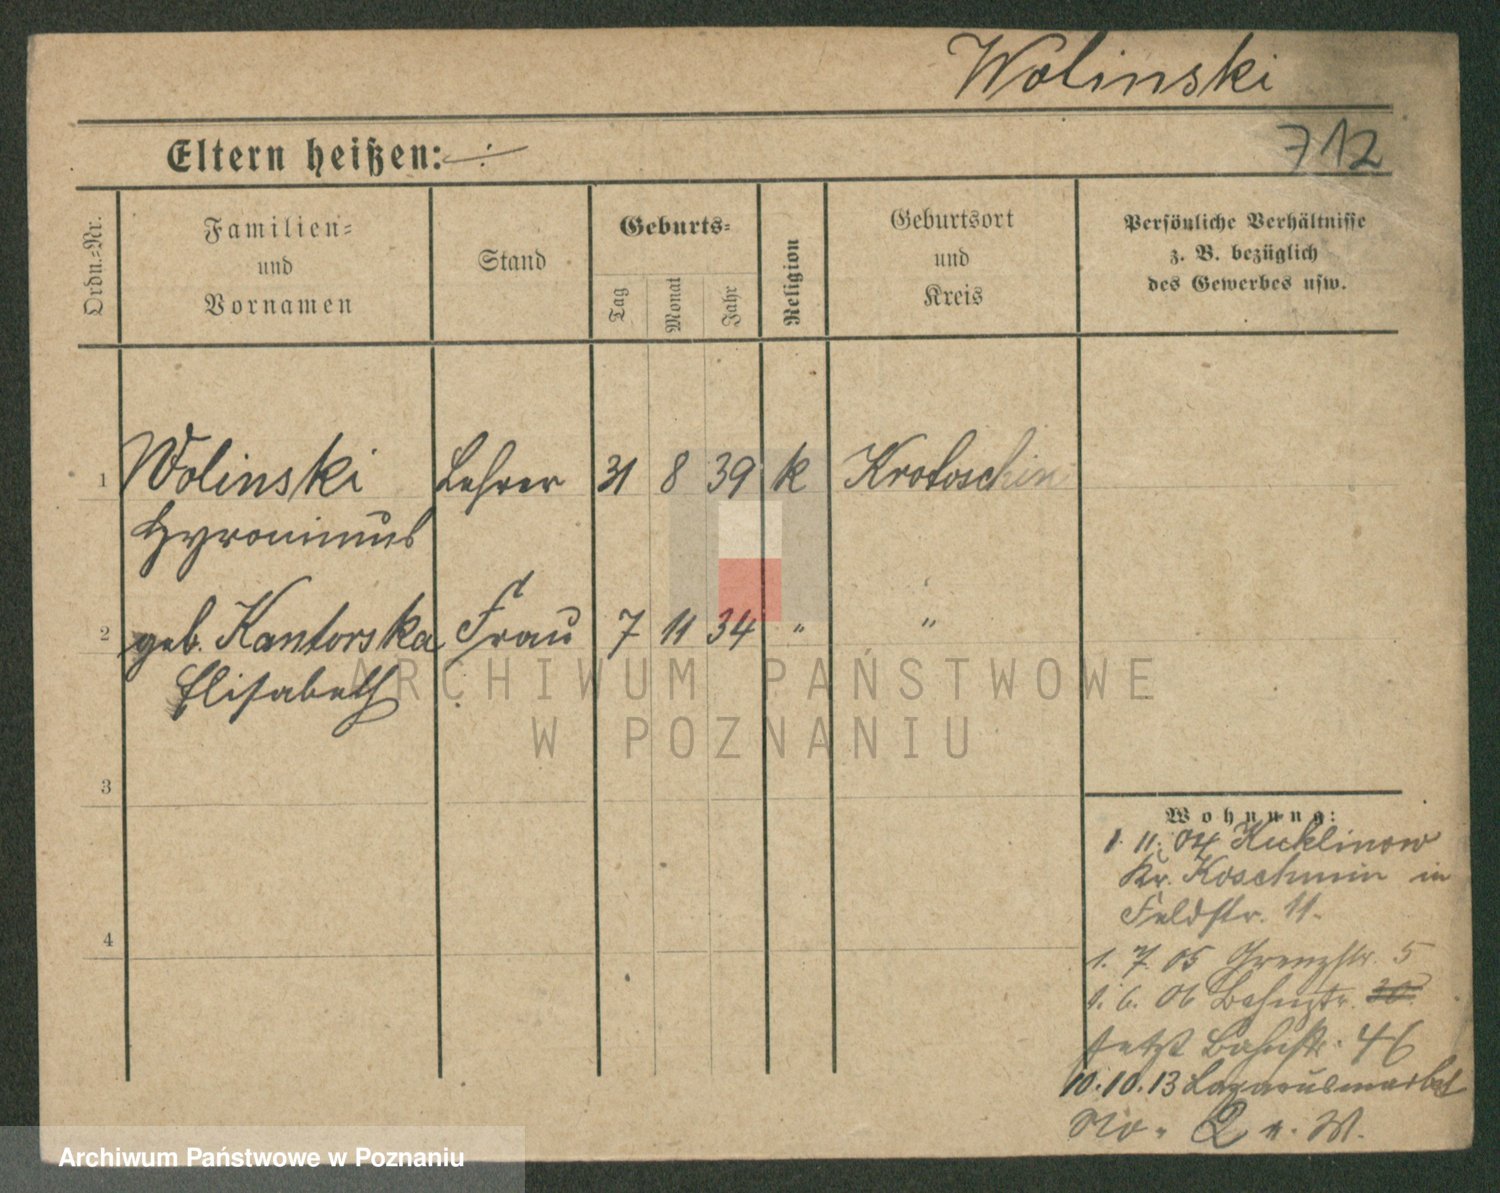 Wolinski
712
Eltern heißen: ÷
Ordn.-Nr.
Familien-
und
Vornamen
Stand
Geburts-
Tag
Monat
Jahr
Religion
Geburtsort
und
Kreis
Persönliche Verhältnisse
z. B. bezüglich
des Gewerbes usw.
1 Wolinski Lehrer 31 8 39 k Krotoschin
Hyronimus
2 geb. Kantorska Frau 7 11 34 " "
Elisabeth
3
4
Wohnung:
1. 11. 04 Kuklinow
Kr. Koschmin in
Feldstr. 11.
1. 7. 05 Grenzstr. 5
1. 6. 06 Bahnstr. 30.
jetzt Bahnstr. 46
10.10.13 Lazarusmarkt
No. 2 v. W.
ARCHIWUM PAŃSTWOWE
W POZNANIU
Archiwum Państwowe w Poznaniu